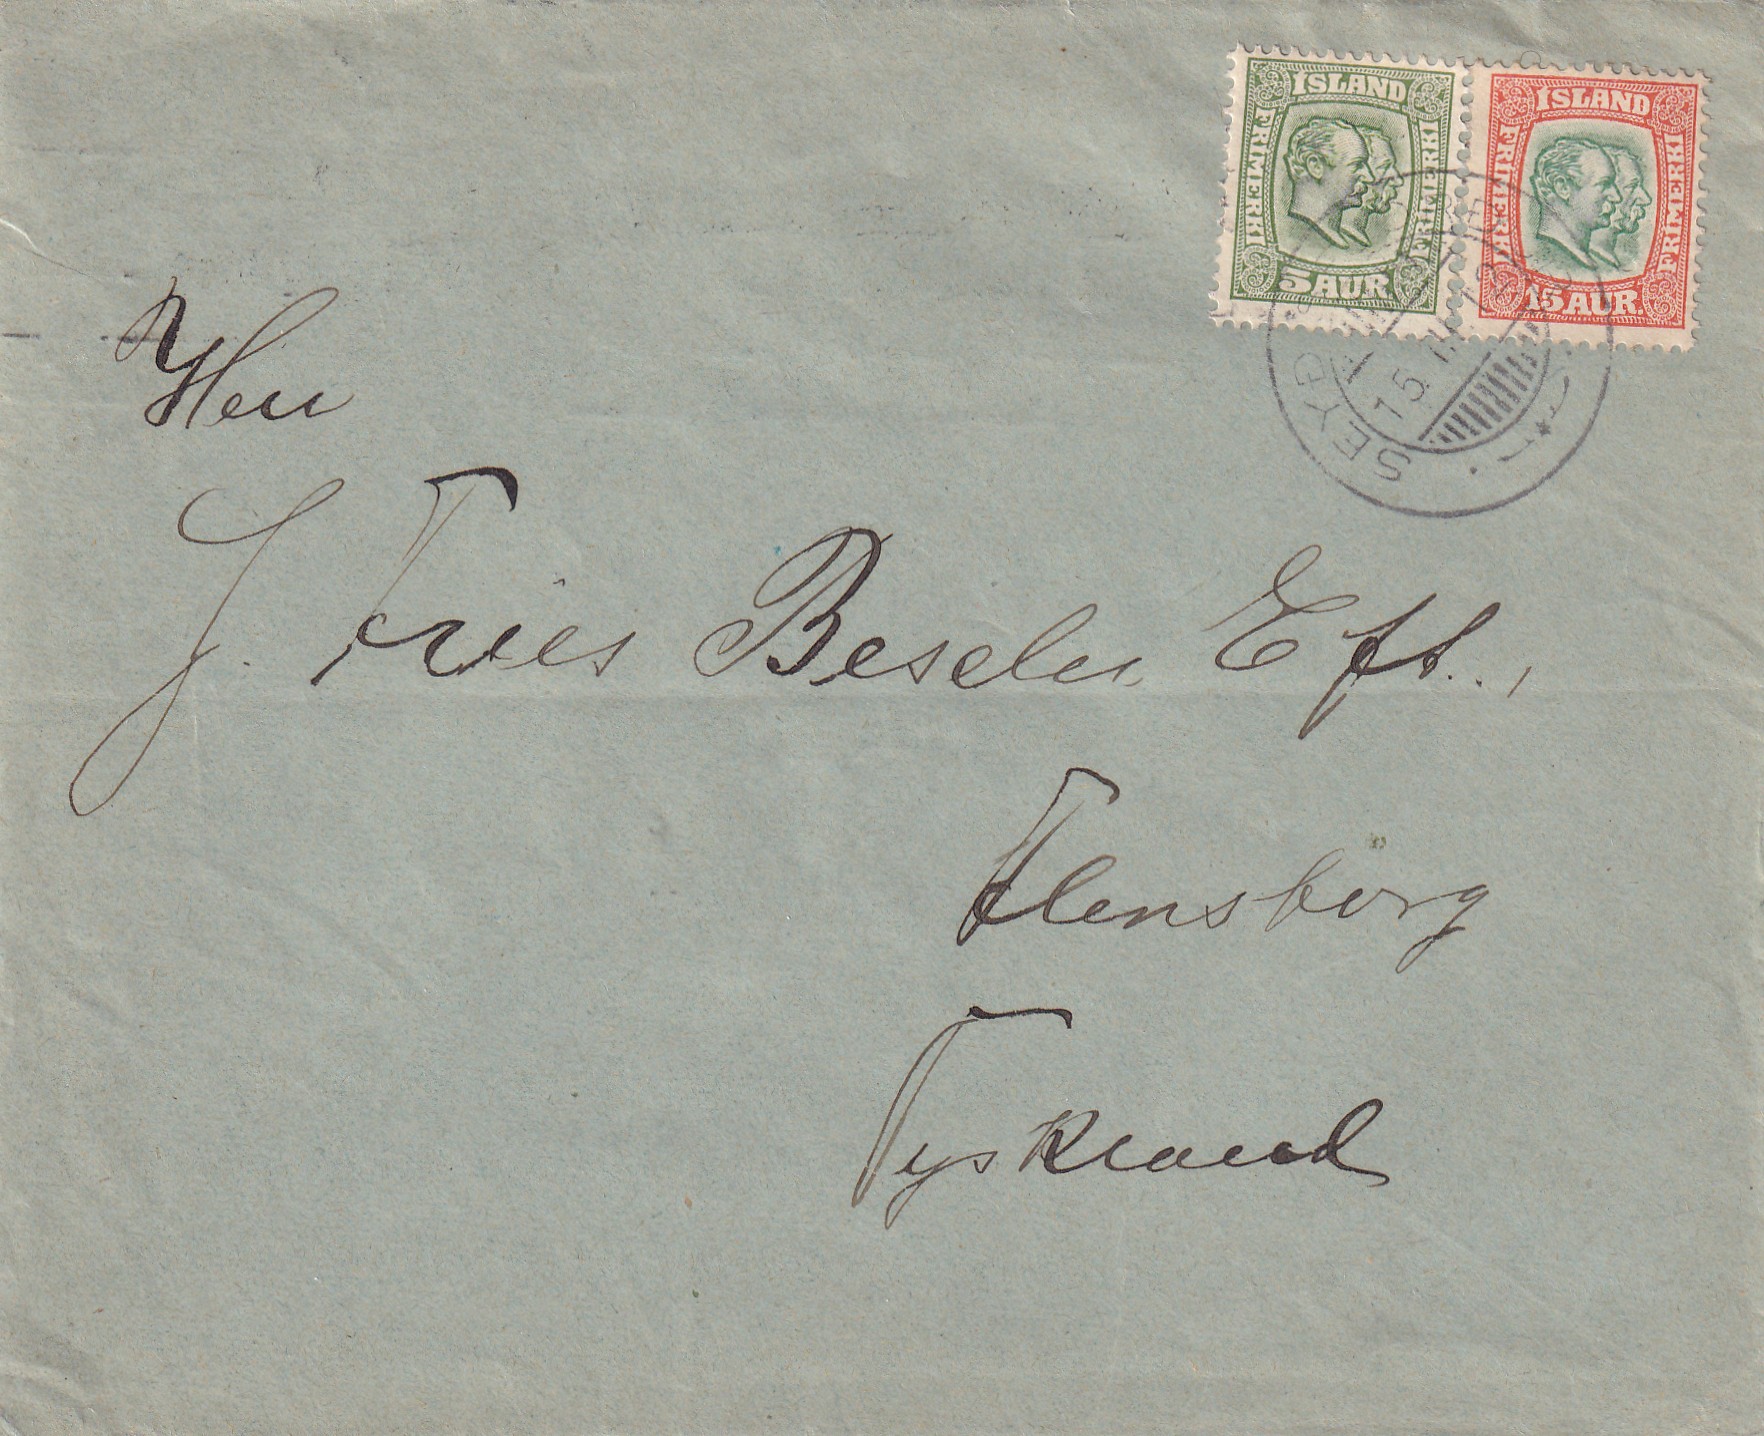 ÍSLAND
FRIMERKI FRIMERKI
5 AUR.
ÍSLAND
FRIMERKI FRIMERKI
15 AUR.
SEYÐ
15.
Herr
J. Fries Beseler Eft.,
Flensborg
Tyskland